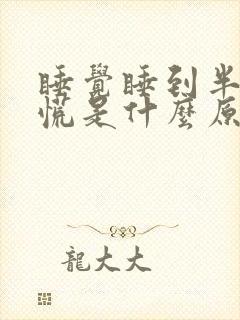 睡覺睡到半
慌是什麼原
龍大大